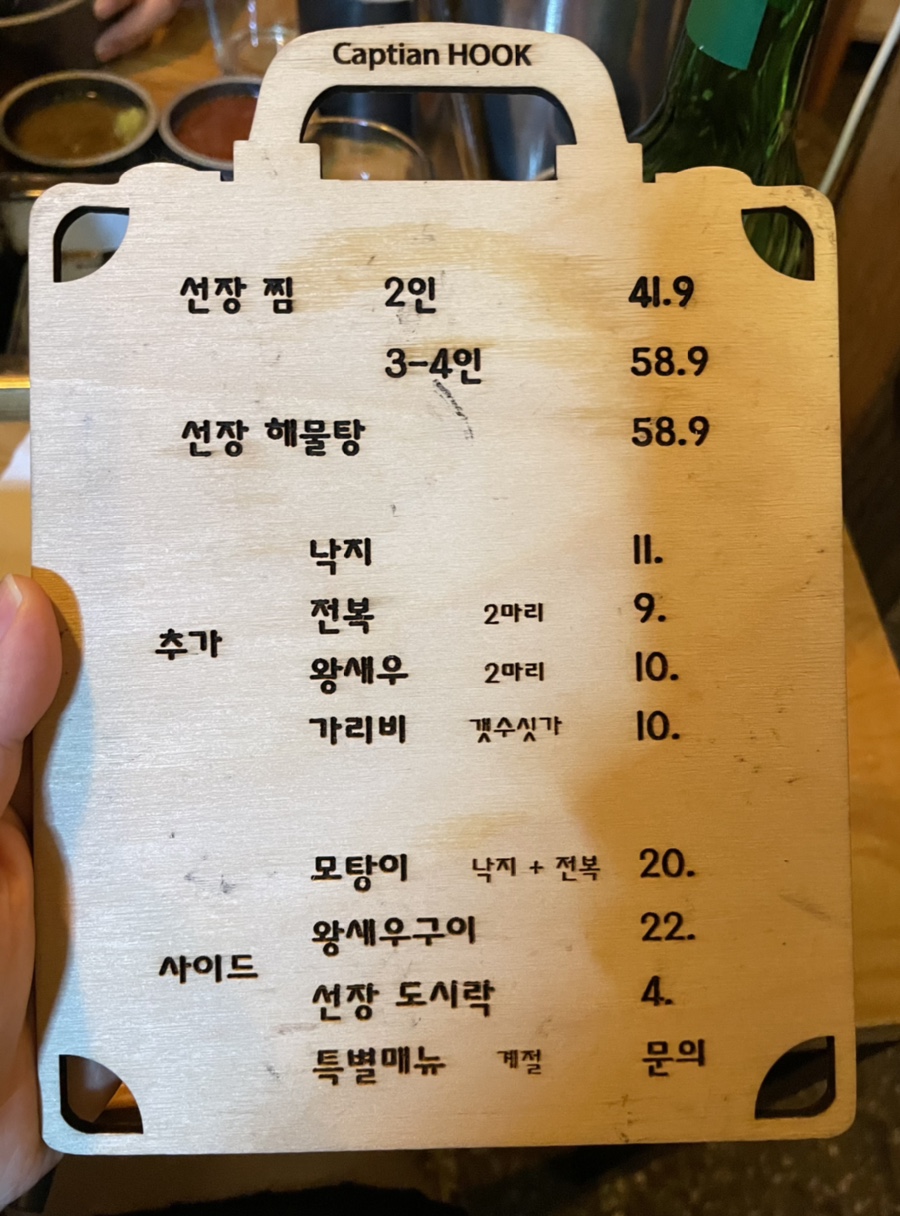 Captian HOOK
선장 찜 2인 41.9
3-4인 58.9
선장 해물탕 58.9
낙지 11.
전복 2마리 9.
추가
왕새우 2마리 10.
가리비 갯수싯가 10.
모탕이 낙지 + 전복 20.
왕새우구이 22.
사이드
선장 도시락 4.
특별메뉴 계절 문의